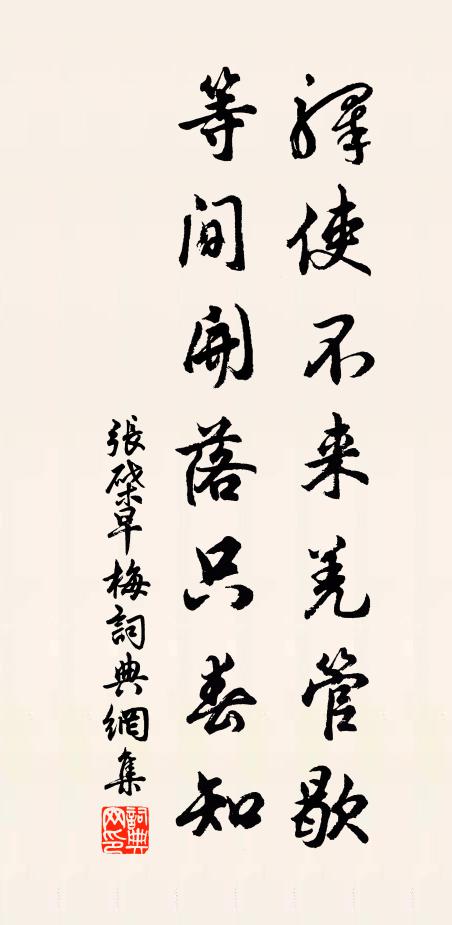 驛使不来羌管歇
等间開落只春知
張榘早梅詞典網集
詞典网印